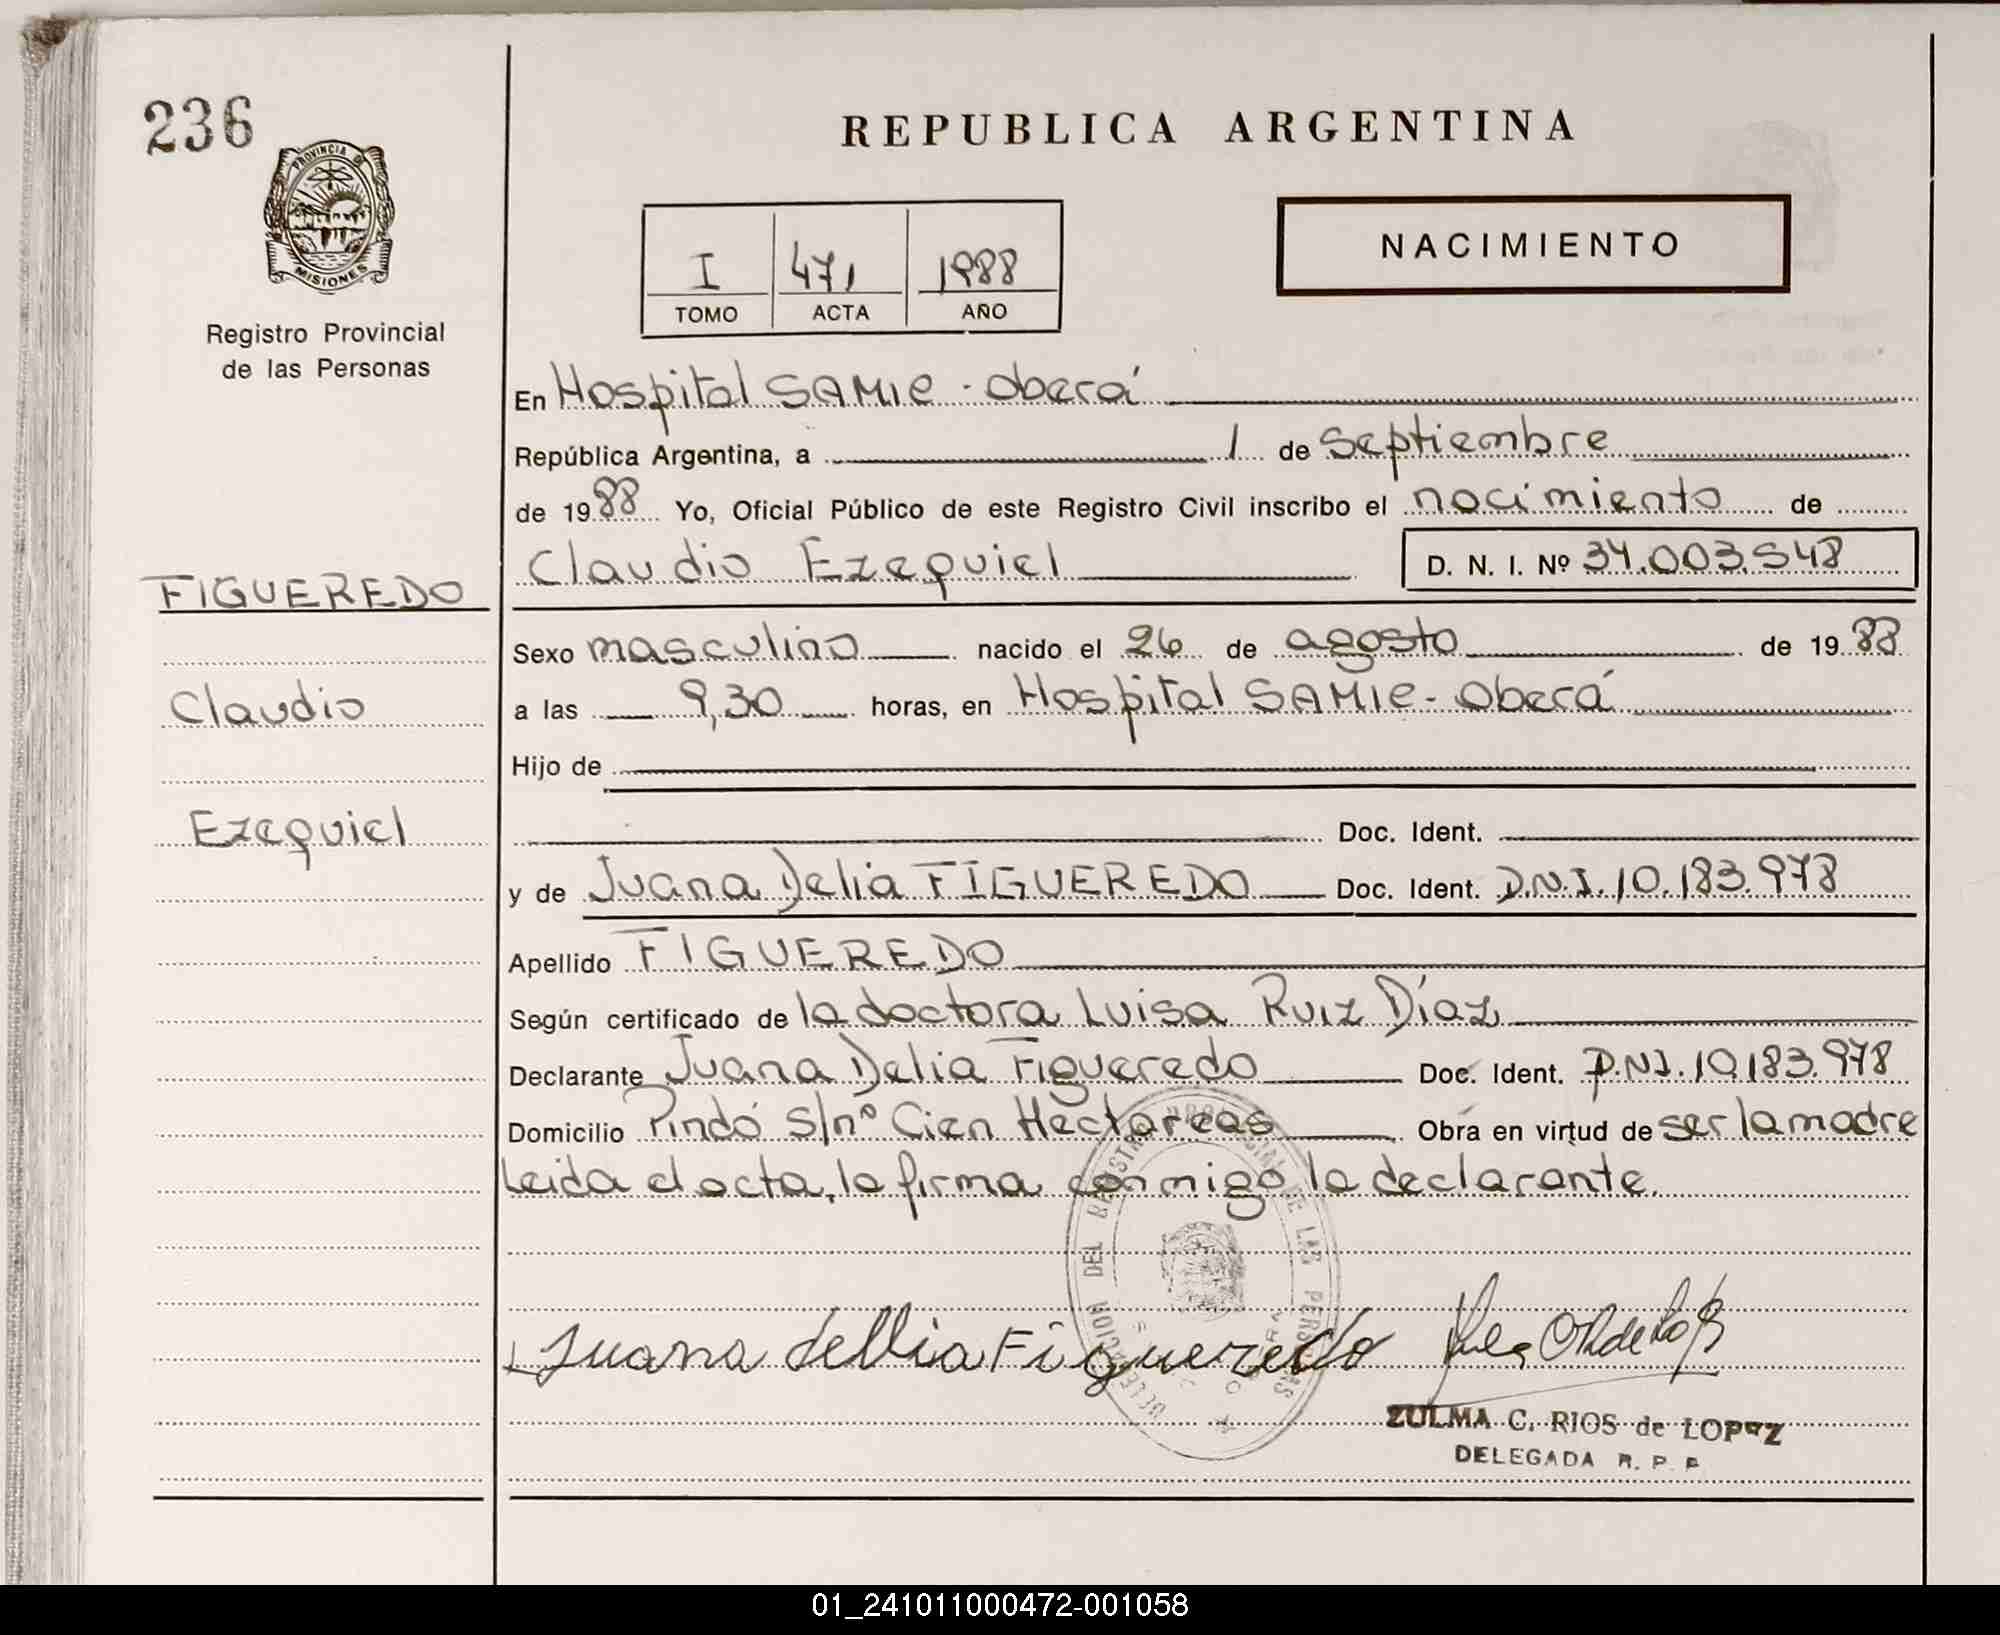 236
PROVINCIA DE
MISIONES
Registro Provincial
de las Personas
REPUBLICA ARGENTINA
I 471 1988
TOMO ACTA AÑO
NACIMIENTO
En Hospital SAMIC - Oberá
República Argentina, a 1 de Septiembre
de 1988 Yo, Oficial Público de este Registro Civil inscribo el nacimiento de
Claudio Ezequiel D. N. I. Nº 34.003.548
FIGUEREDO
Claudio
Ezequiel
Sexo masculino nacido el 26 de agosto de 1988
a las 9,30 horas, en Hospital SAMIC - Oberá
Hijo de
Doc. Ident.
y de Juana Delia FIGUEREDO Doc. Ident. D.N.I. 10.183.978
Apellido FIGUEREDO
Según certificado de la doctora Luisa Ruiz Díaz
Declarante Juana Delia Figueredo Doc. Ident. D.N.I. 10.183.978
Domicilio Pindó s/nº Cien Hectareas Obra en virtud de ser la madre
Leida el acta, la firma conmigo la declarante.
DEL REGISTRO PROVINCIAL DE LAS PERSONAS
Juana dellia Figueredo
ZULMA C. RIOS de LOPEZ
DELEGADA R. P. P
01_241011000472-001058